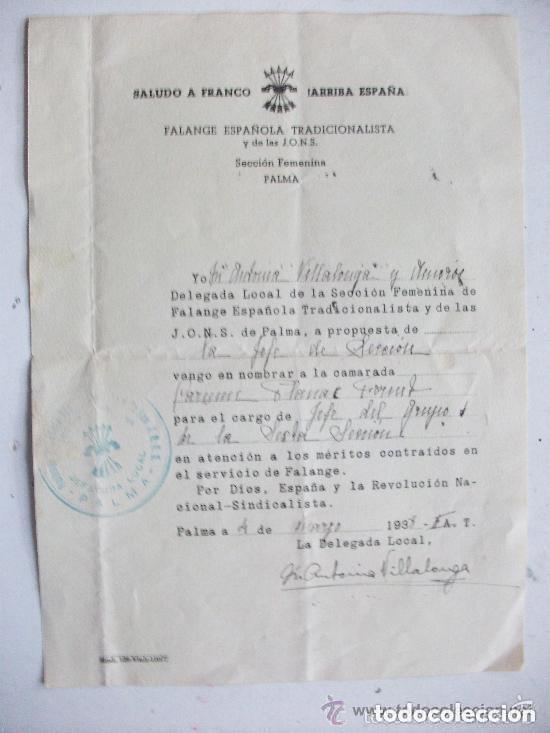 SALUDO A FRANCO ¡ARRIBA ESPAÑA
FALANGE ESPAÑOLA TRADICIONALISTA
y de las J.O.N.S.
Sección Femenina
PALMA
Yo Mª Antonia Villalonga y
Delegada Local de la Sección Femenina de
Falange Española Tradicionalista y de las
J.O.N.S. de Palma, a propuesta de
la Jefe de Sección
vengo en nombrar a la camarada
para el cargo de Jefe del Grupo
de la Sexta Sección
en atención a los méritos contraídos en
el servicio de Falange.
Por Dios, España y la Revolución Na-
cional-Sindicalista.
Palma a 4 de marzo 193 A. T.
La Delegada Local,
Mª Antonia Villalonga
JEFATURA LOCAL
PALMA
www.todocoleccion.net
todocoleccion